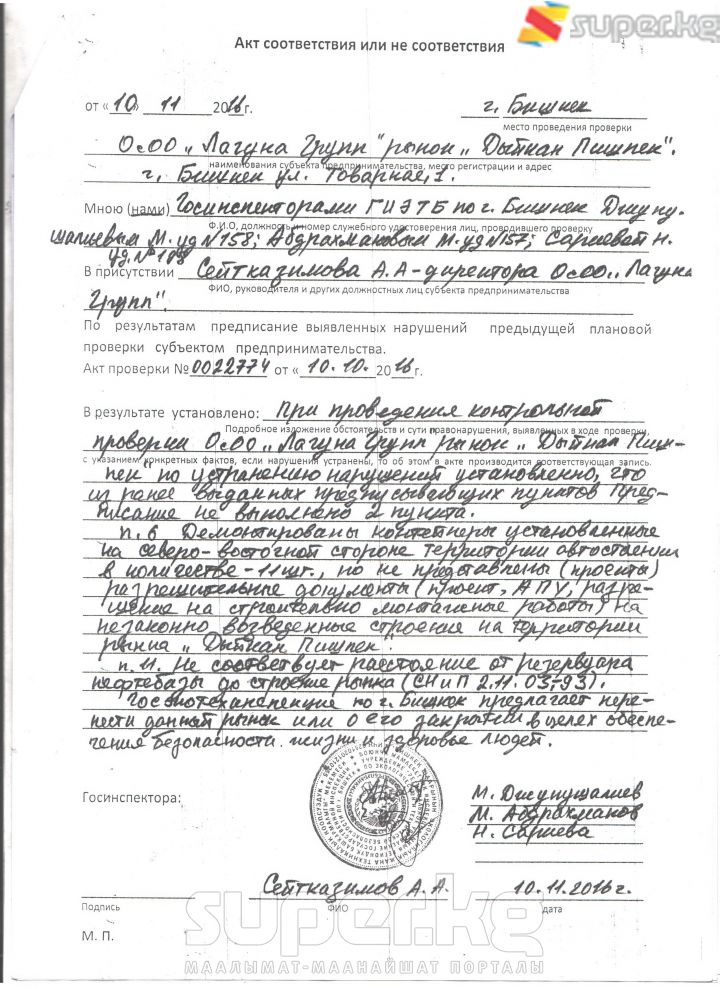 super.kg
Акт соответствия или не соответствия
от «10» 11 2016г. г. Бишкек
место проведения проверки
ОсОО „Лагуна Групп" рынок „Дыйкан Пишпек".
наименования субъекта предпринимательства, место регистрации и адрес
г. Бишкек ул. Товарная, 1.
Мною (нами) Госинспекторами ГИЭТБ по г. Бишкек Джупу-
Ф.И.О, должность и номер служебного удостоверения лиц, проводившего проверку
шалиевым М. уд №158; Абдрахмановым М. уд №157; Сариевой Н.
уд. №
В присутствии Сейтказимова А.А - директора ОсОО „Лагуна
ФИО, руководителя и других должностных лиц субъекта предпринимательства
Групп".
По результатам предписание выявленных нарушений предыдущей плановой
проверки субъектом предпринимательства.
Акт проверки №0022774 от «10.10. 2016г.
В результате установлено: При проведения контрольной
Подробное изложение обстоятельств и сути правонарушения, выявленных в ходе проверки,
проверки ОсОО „Лагуна Групп рынок „Дыйкан Пиш-
с указанием конкретных фактов, если нарушения устранены, то об этом в акте производится соответствующая запись.
пек" по устранению нарушений установленно, что
из ранее выданных предписывающих пунктов Пред-
писание не выполнено 2 пункта.
п. 6 Демонтированы контейнеры установленные
на северо-восточной стороне территории автостоянки
в количестве - 11 шт., но не представлены (проекты)
разрешительные документы (проект, АПУ, разре-
шение на строительно монтажные работы) на
незаконно возведенные строения на территории
рынка „Дыйкан Пишпек".
п. 11. Не соответсвует расстояние от резервуара
нефтебазы до строение рынка (СНиП 2.11.03-93).
Госэкотехинспекция по г. Бишкек предлагает пере-
нести данный рынок или о его закрытии в целях обеспе-
чения безопасности жизни и здоровье людей.
Госинспектора: М. Джупушалиев
М. Абдрахманов
Н. Сариева
Сейтказимов А.А. 10.11.2016г.
Подпись ФИО дата
М. П.
super.kg
МААЛЫМАТ-МААНАЙШАТ ПОРТАЛЫ